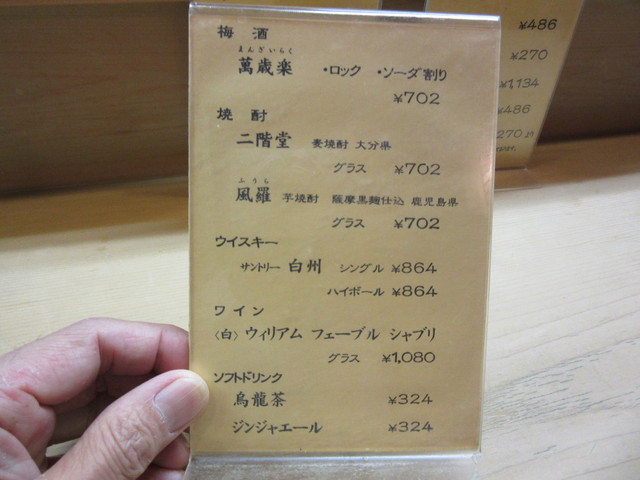 梅酒
まんざいらく
萬歳楽 ・ロック ・ソーダ割り
¥702
焼酎
二階堂 麦焼酎 大分県
グラス ¥702
ふうら
風羅 芋焼酎 薩摩黒麹仕込 鹿児島県
グラス ¥702
ウイスキー
サントリー 白州 シングル ¥864
ハイボール ¥864
ワイン
〈白〉ウィリアム フェーブル シャブリ
グラス ¥1,080
ソフトドリンク
烏龍茶 ¥324
ジンジャエール ¥324
¥486
¥270
¥1,134
¥486
270より